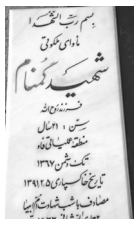 بسم رب الشهدا
ماوای ملکوتی
شهید گمنام
فرزند روح الله
سن : ۲۱ سال
منطقه عملیاتی فاو
تک دشمن ۱۳۶۷
تاریخ خاکسپاری ۱۳۹۱،۲،۵
مصادف با شب شهادت